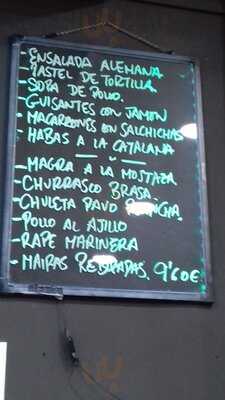 - ENSALADA ALEMANA
- PASTEL DE TORTILLA
- SOPA DE POLLO.
- GUISANTES CON JAMON
- MACARRONES CON SALCHICHAS
- HABAS A LA CATALANA
- MAGRA A LA MOSTAZA
- CHURRASCO BRASA
- CHULETA PAVO PLANCHA.
- POLLO AL AJILLO
- RAPE MARINERA
- MAIRAS REBOZADAS. 9'60€